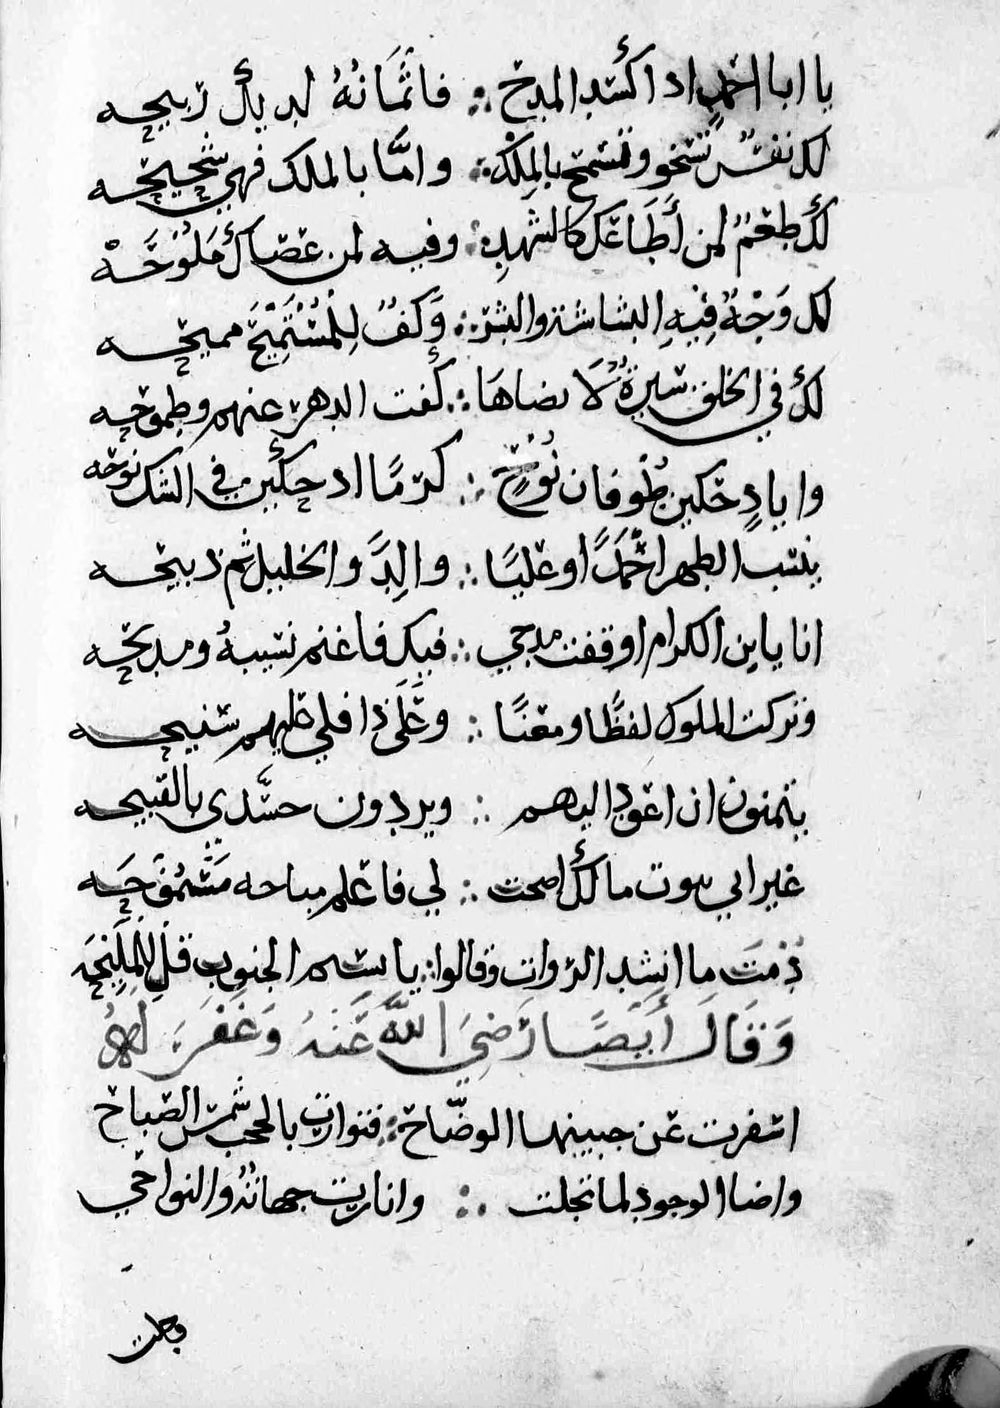 يا ابا احمد اذا كسد المدح ∴ فاثمانه لديك ربيحه
لك نفس تسخو وتسمح بالملك ∴ واما بالملك فهي شحيحه
لك طعم لمن أطاعك كالشهد ∴ وفيه لمن عصاك ملوحه
لك وجه فيه البشاشة والبشر ∴ وكف للمستميح مميحه
لك في الخلق سيرة لا يضاها ∴ كفت الدهر عنهم وطموحه
واياد حكين طوفان نوح ∴ كرما اذ حكين في الشك نوحه
بنسب الطهر احمدا وعليا ∴ والد والخليل ثم ذبيحه
انا يابن الكرام اوقفت مدحي ∴ فيك فاغنم نسيبه ومديحه
وتركت الملوك لفظا ومعنا ∴ وعلى ذا فلي عليهم سنيحه
يتمنون ان اعود اليهم ∴ ويردون حسدي بالقبيحه
غير اني بيوت مالك اصحت ∴ لي فاعلم مباحه مسموحه
دمت ما انشد الرواة وقالوا ∴ يا نسيم الجنوب قل للمليحه
وقال أيضا رضي الله عنه وغفر له
اسفرت عن جبينها الوضاح ∴ فتوارت بالحجب شمس الصباح
واضا الوجود لما تجلت ∴ وانارت جهاته والنواحي
وجلت